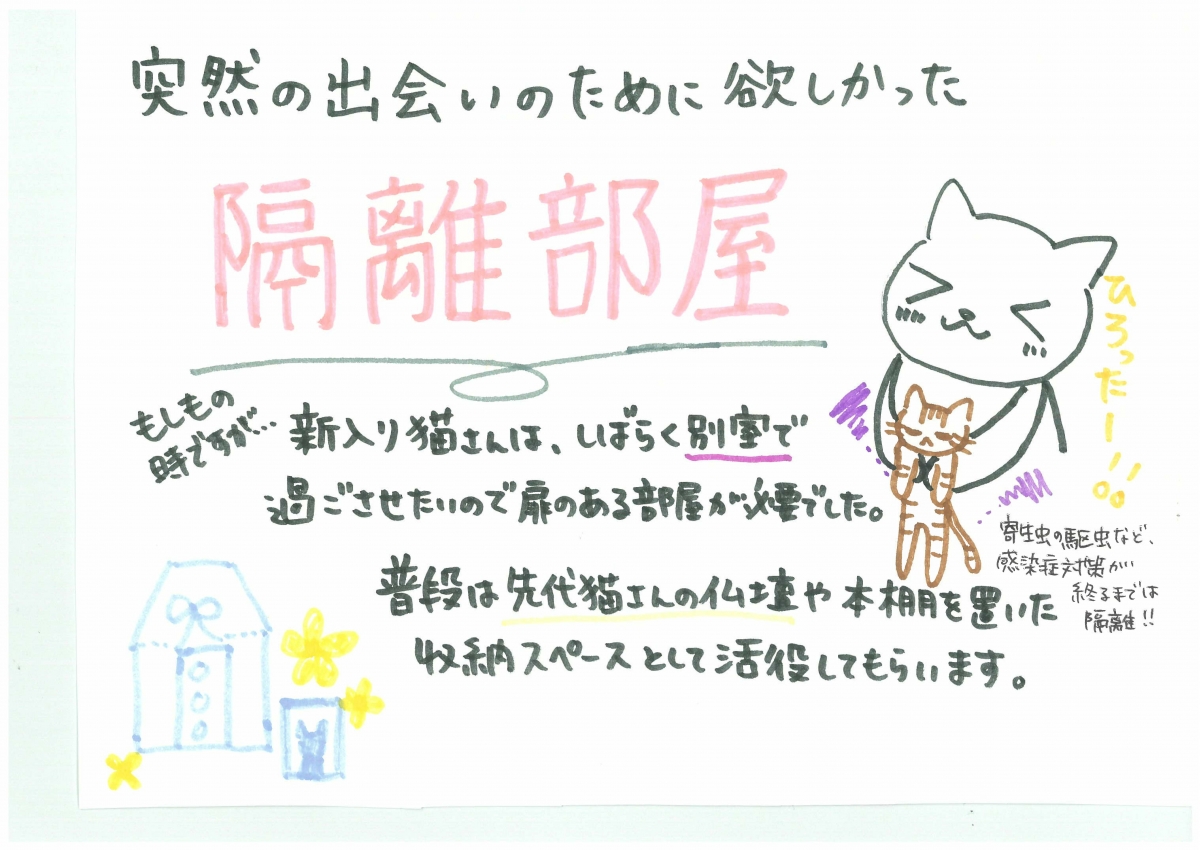 突然の出会いのために欲しかった
隔離部屋
もしもの
時ですが…
新入り猫さんは、しばらく別室で
過ごさせたいので扉のある部屋が必要でした。
ひろったー!!
寄生虫の駆虫など、
感染症対策が
終るまでは
隔離!!
普段は先代猫さんの仏壇や本棚を置いた
収納スペースとして活役してもらいます。